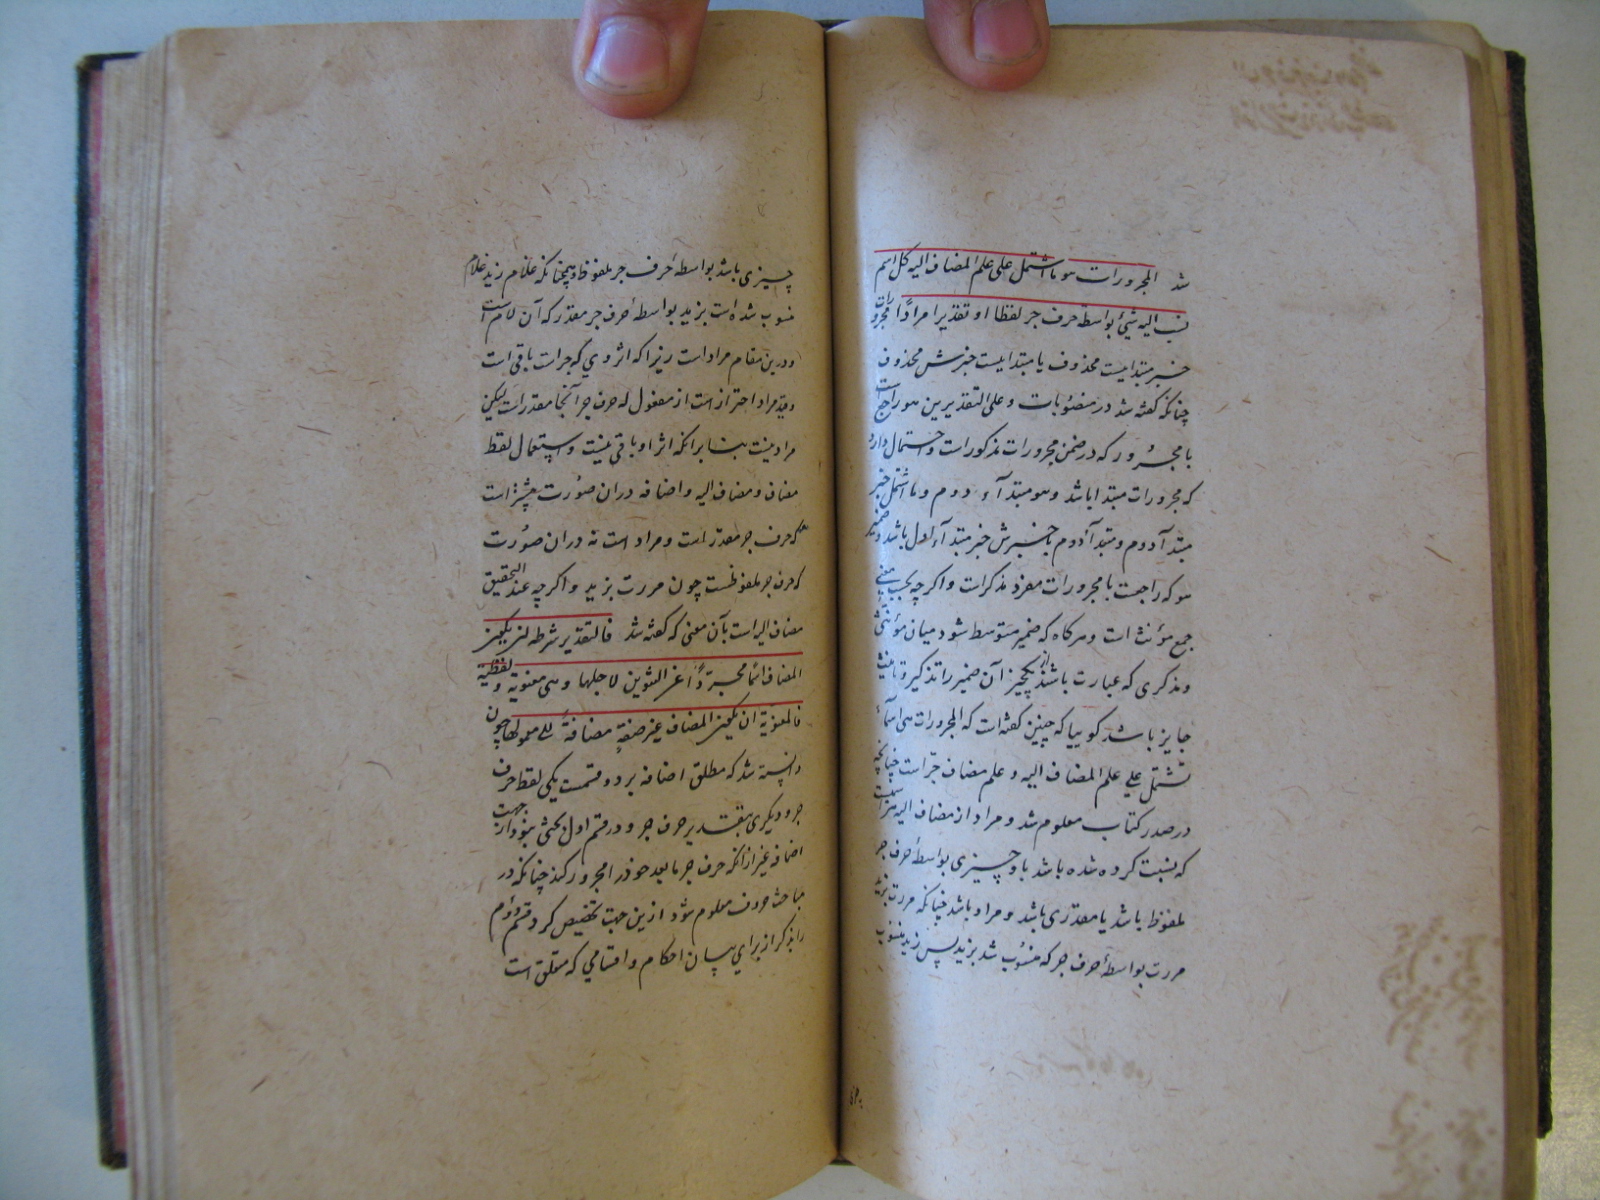 شد المجرورات هو ما اشتمل علی علم المضاف الیه کل اسم
نسب الیه شیٔ بواسطه حرف جر لفظا او تقدیرا مرادًا مجرورات
خبر مبتدائیست محذوف یا مبتدائیست خبرش محذوف
چنانکه گفته شد در منصوبات و علی التقدیرین هو راجع است
با مجرور که در ضمن مجرورات مذکورات و احتمال دارد
که مجرورات مبتدا باشد و هو مبتدآء دوم و ما اشتمل خبر
مبتدآ دوم و مبتدآ دوم با خبرش خبر مبتدآء اول باشد و ضمیر
هو که راجعت با مجرورات مفرد مذکرات و اگرچه بحسب معنی
جمع مؤنث است و هرگاه که ضمیر متوسط شود میان مؤنثی
و مذکری که عبارت باشند از یکچیز آن ضمیر را تذکیر و تانیث
جایز باشد گوییا که چنین گفته است که المجرورات هی اسمآء
تشتمل علی علم المضاف الیه و علم مضاف جر است چنانچه
در صدر کتاب معلوم شد و مراد از مضاف الیه هر اسمیست
که نسبت کرده شده باشد باو چیزی بواسطهٔ حرف جر
ملفوظ باشد یا مقدری باشد و مراد باشد چنانکه مررت بزید
مررت بواسطهٔ حرف جر که منسوب شد بزید پس زید منسوب
چیزی باشد بواسطهٔ حرف جر ملفوظ و همچنانکه غلام زید غلام
منسوب شده است بزید بواسطهٔ حرف جر مقدر که آن لام است
و درین مقام مراد است زیرا که اثر وی که جر است باقی است
و قید مراد احتراز است از مفعول له حرف جر آنجا مقدر است لیکن
مراد نیست بنا بر آنکه اثر او باقی نیست و استعمال لفظ
مضاف و مضاف الیه و اضافه در آن صورت بیشتر است
که حرف جر مقدر است و مراد است نه در آن صورت
که حرف جر ملفوظست چون مررت بزید و اگرچه عند التحقیق
مضاف الیه است بآن معنی که گفته شد فالتقدیر شرطه ان یکون
المضاف اسما مجردًا عن التنوین لاجلها و هی معنویة و لفظیة
فالمعنویة ان یکون المضاف غیر صفة مضافة الی معمولها چون
دانسته شد که مطلق اضافه بر دو قسمست یکی لفظ حرف
جر و دیگری بتقدیر حرف جر و در قسم اول بحثی نبود از جهت
اضافه غیر از آنکه حرف جر ما بعد خود را مجرور کند چنانکه در
مباحث حروف معلوم شود ازین جهت تخصیص کرد قسم دوم
را بذکر از برای بیان احکام و اقسامی که متعلق است